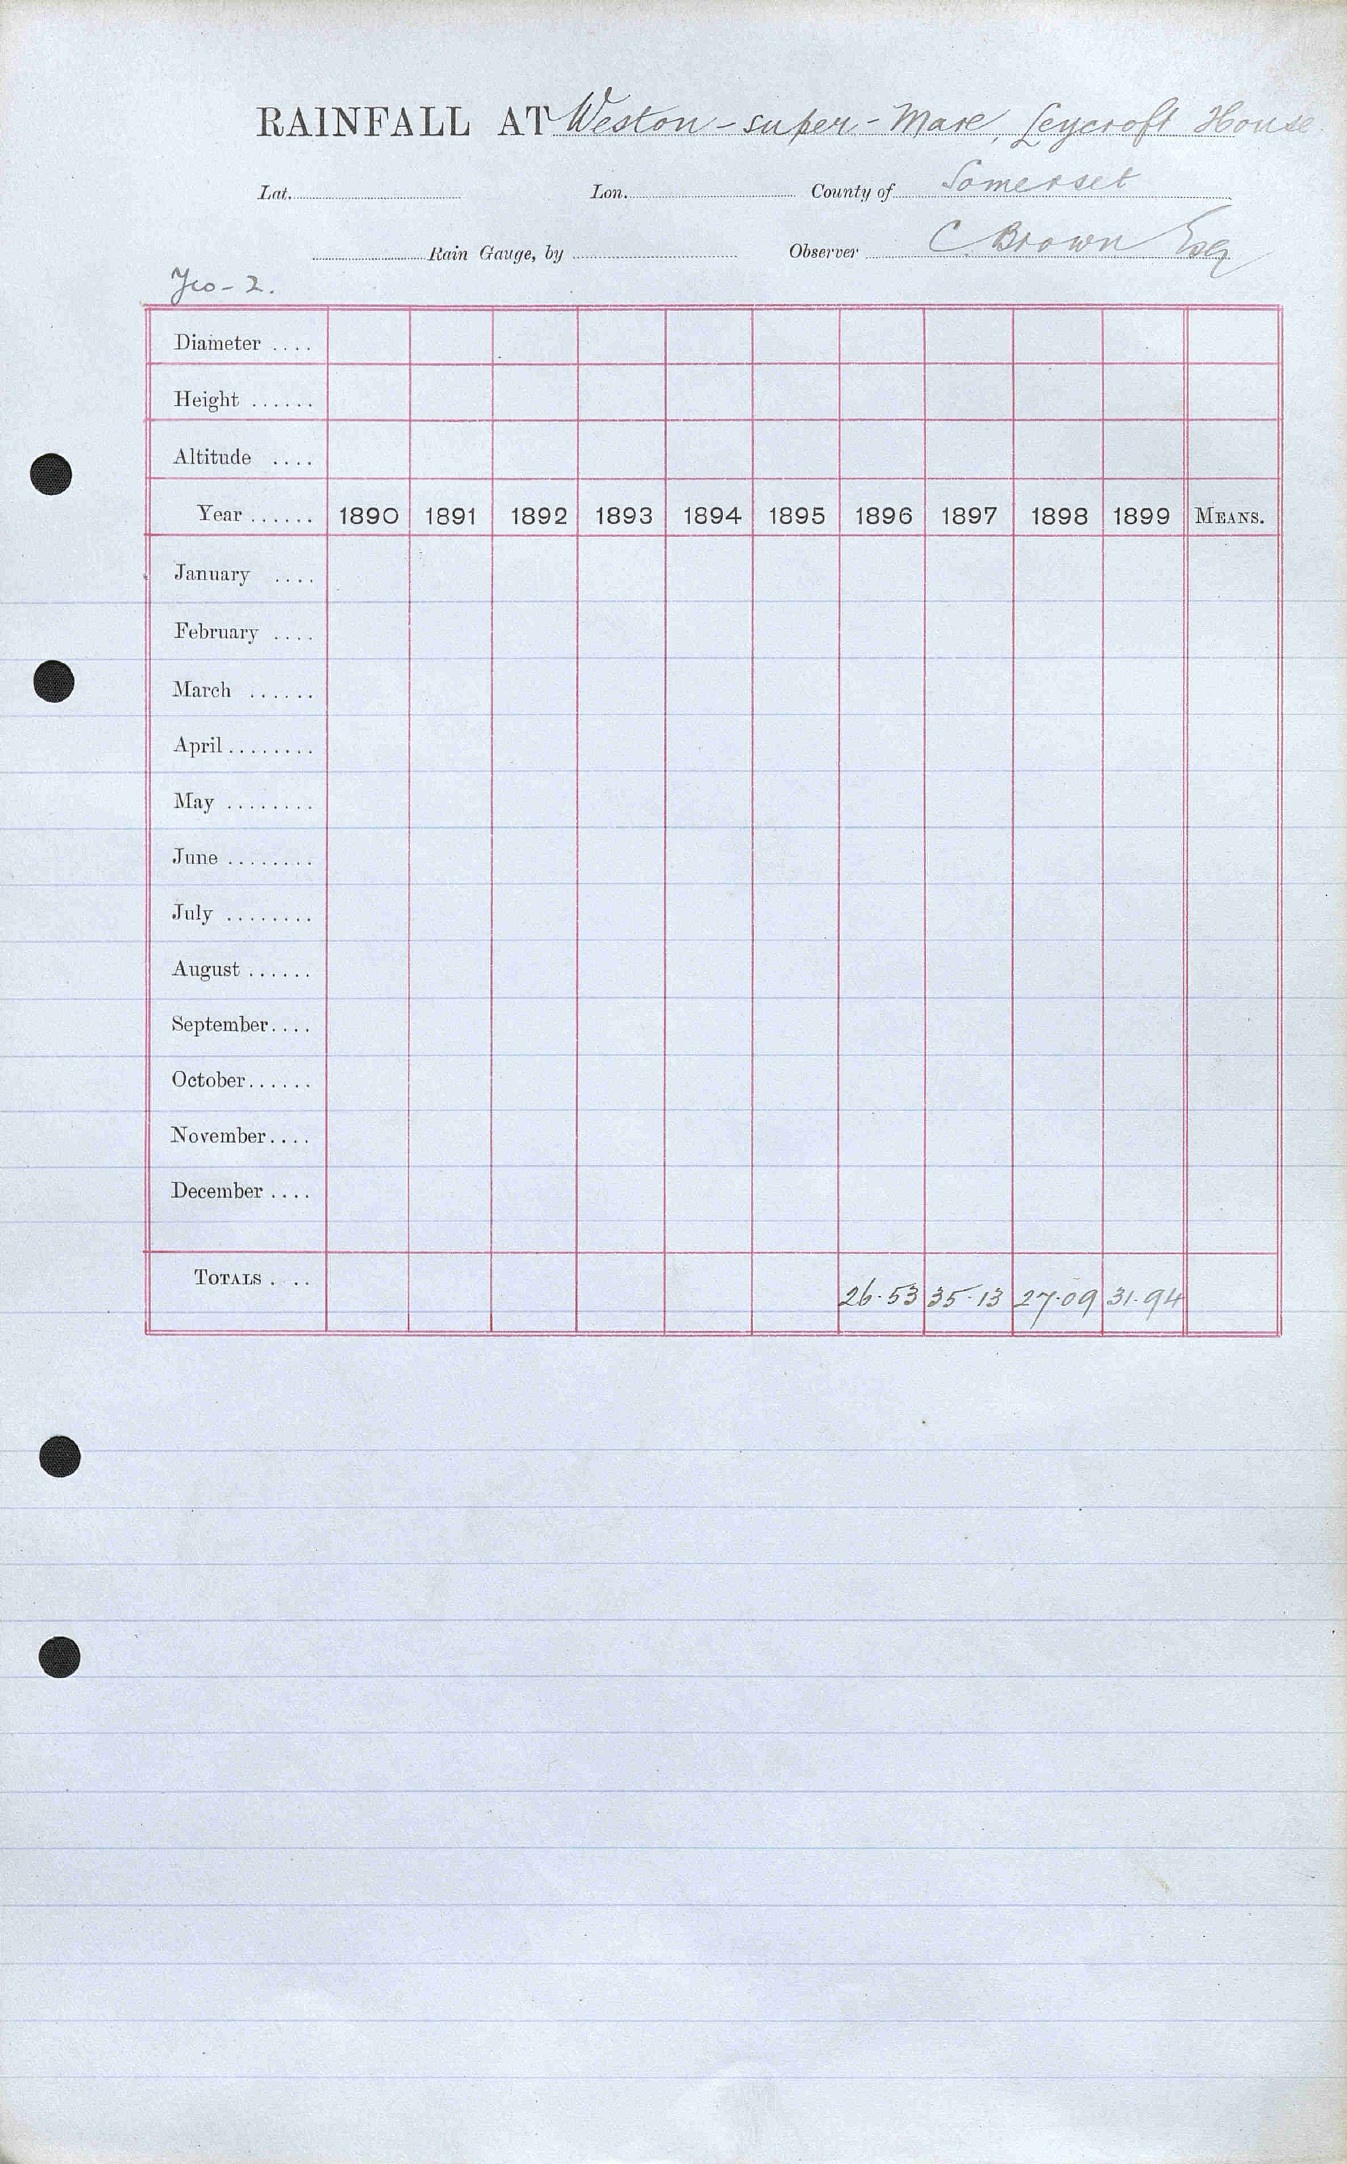 RAINFALL AT Weston-super-Mare, Leycroft House
Lat. Lon. County of Somerset
Rain Gauge, by Observer C. Brown Esq
Yeo-2.
Diameter ....
Height ......
Altitude ....
Year ...... 1890 1891 1892 1893 1894 1895 1896 1897 1898 1899 MEANS.
January ....
February ....
March ......
April ........
May ........
June ........
July ........
August ......
September ....
October ......
November ....
December ....
TOTALS . .. 26.53 35.13 27.09 31.94